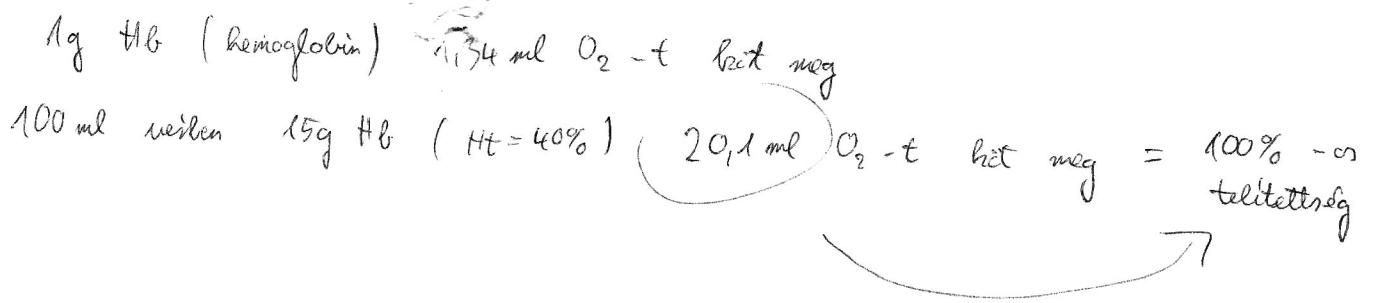 1g Hb (hemoglobin) 1,34 ml O₂-t köt meg
100 ml vérben 15g Hb (Ht = 40%) 20,1 ml O₂-t köt meg = 100%-os
telítettség